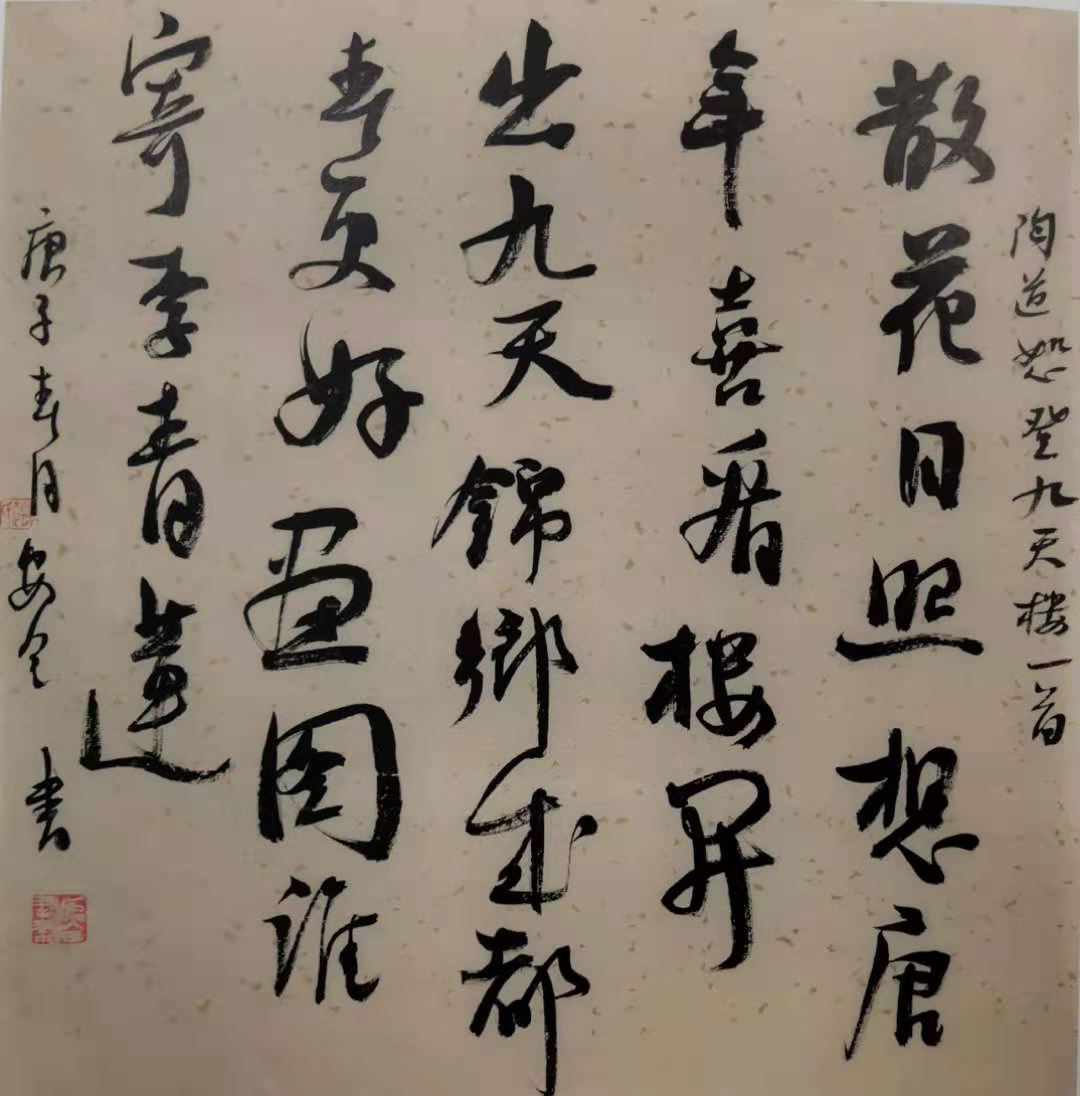 陶道恕登九天楼一首
散花日照想唐
年喜看楼开
出九天锦乡成都
春更好画图谁
寄李青莲
庚子春月
书